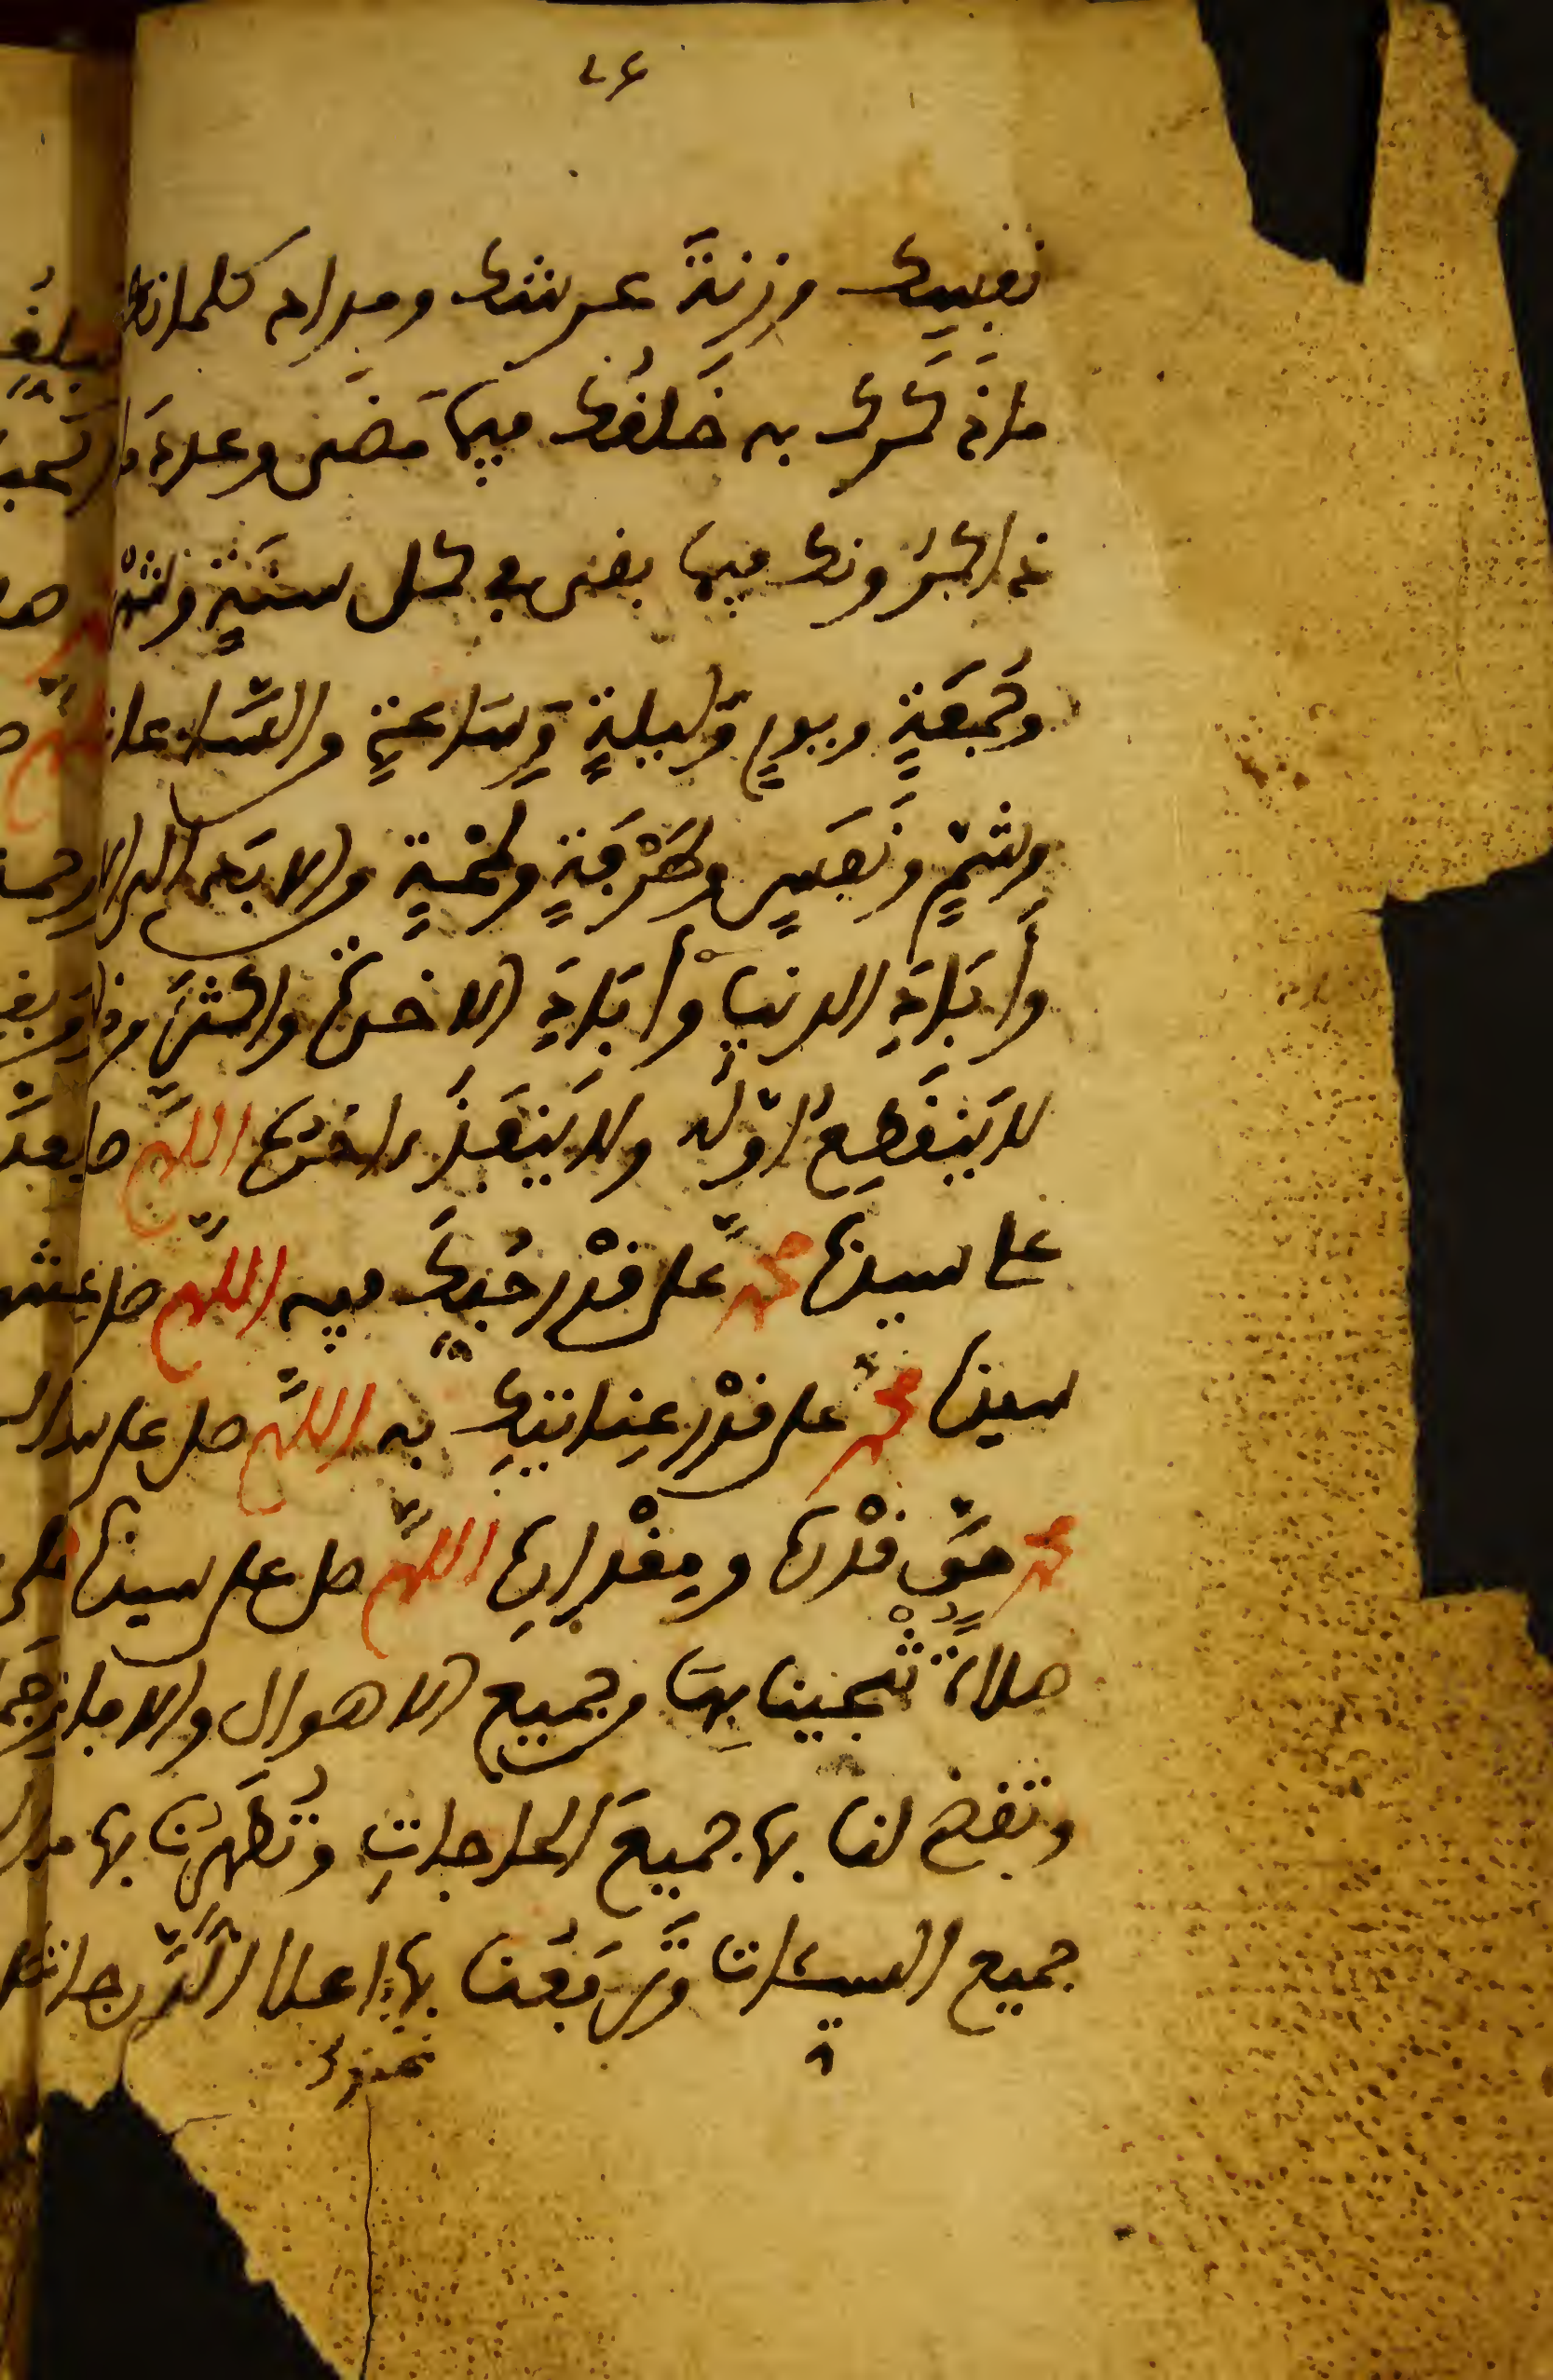 ٤٦
نفسك وزنة عرشك ومداد كلماتك
ماذكرك به خلقك فيما مضى وعدد ما
ذاكرونك فيما بقى فى كل سنةٍ وشهر
وجُمعَةٍ ويومٍ وليلةٍ وساعةٍ من الساعات
وشمٍّ ونَفَسٍ وطَرْفَةٍ ولمْحَةٍ من الابد الى الابد
وأَبَادِ الدنيا وأبَادِ الاخرة واكثرَ من ذلك
لا يَنقطِعُ اوله ولا يَنفَدُ اخره اللهم صل
على سيدنا محمد على قدْر حُبِّك فيه اللهم صل على
سيدنا محمد على قدْر عِنايتِك به اللهم صل على سيدنا
محمد حقَّ قدْرِه ومِقْدارِه اللهم صل على سيدنا محمد
صلاة تُنْجينا بِهَا من جميع الاهوال والافات
وتقضى لنا بها جميعَ الحاجاتِ وتُطَهِّرُنا بها من
جميع السيئات وتَرفَعُنا بها اعلا الدَّرجات